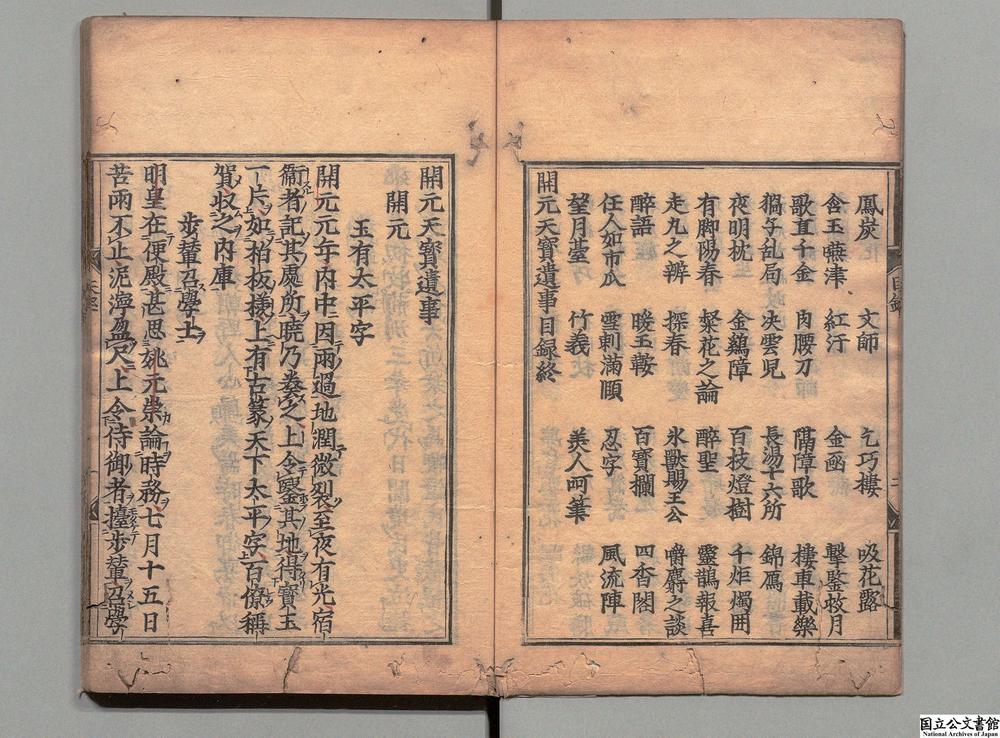 鳳炭 文師 乞巧樓 吸花露
含玉嚥津 紅汗 金函 擊鑒救月
歌直千金 肉腰刀 隔障歌 樓車載樂
猧子乱局 决雲兒 長湯十六所 錦鴈
夜明枕 金鷄障 百枝燈樹 千炬燭囲
有脚陽春 粲花之論 醉聖 靈鵲報喜
走丸之辨 探春 氷獸賜王公 嚼麝之談
醉語 暖玉鞍 百寶欄 四香閣
任人如市瓜 雪刺滿頤 忍字 風流陣
望月䑓 竹義 美人呵筆
開元天寶遺事目録終
目録
開元天寶遺事
開元
玉有太平字
開元元年内中因雨過地潤微裂至夜有光宿
衞者記其處所曉乃奏之上令鑿其地得寶玉
一片如柏板樣上有古篆天下太平字百僚稱
賀收之内庫
步輦召學士
明皇在便殿甚思姚元崇論時務七月十五日
苦雨不止泥濘盈尺上令侍御者擡步輦召學
国立公文書館
National Archives of Japan